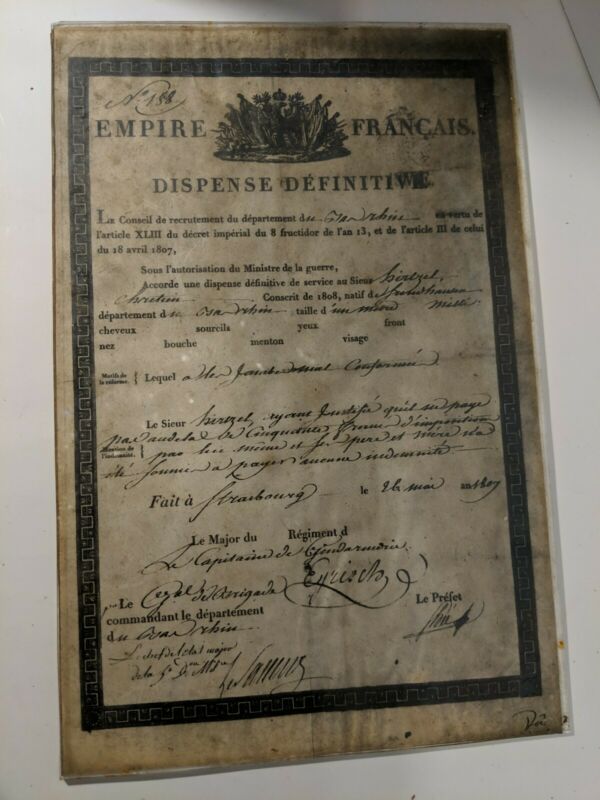 N.º 188
EMPIRE FRANÇAIS.
DISPENSE DÉFINITIVE
LE Conseil de recrutement du département du Bas rhin en vertu de
l'article XLIII du décret impérial du 8 fructidor de l'an 13, et de l'article III de celui
du 18 avril 1807,
Sous l'autorisation du Ministre de la guerre,
Accorde une dispense définitive de service au Sieur hirtzel,
Chretien . Conscrit de 1808, natif de
département du Bas rhin taille d'un mètre milli
cheveux sourcils yeux front
nez bouche menton visage
Motifs de la réforme. Lequel a les Jambes mal Conformées
Le Sieur hirtzel, ayant Justifié qu'il ne paye
Mention de l'indemnité. pas audela de Cinquante francs d'imposition
par lui même et Ses pere et mère n'a
été soumis à payer aucune indemnité
Fait à Strasbourg le 26 mai an 1807
Le Major du Régiment d
Le Capitaine de Gendarmerie
Le Gal de Brigade
commandant le département
du Bas rhin
Le Préfet
Le chef de l'état major
de la 5e Don Mre